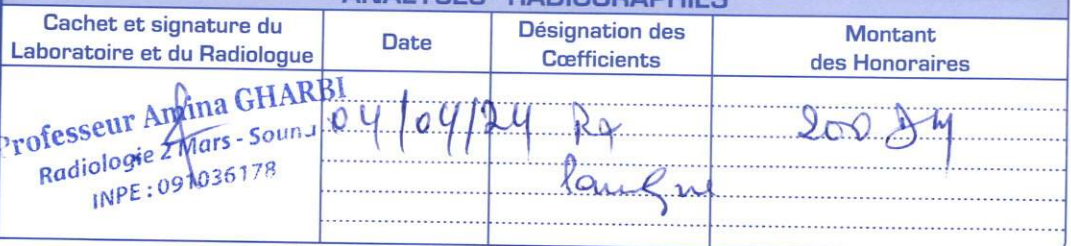 ANALYSES - RADIOGRAPHIES
Cachet et signature du
Laboratoire et du Radiologue
Date
Désignation des
Cœfficients
Montant
des Honoraires
Professeur Amina GHARBI
Radiologie 2 Mars - Souna
INPE : 091036178
04/04/24 Rx 200 DH